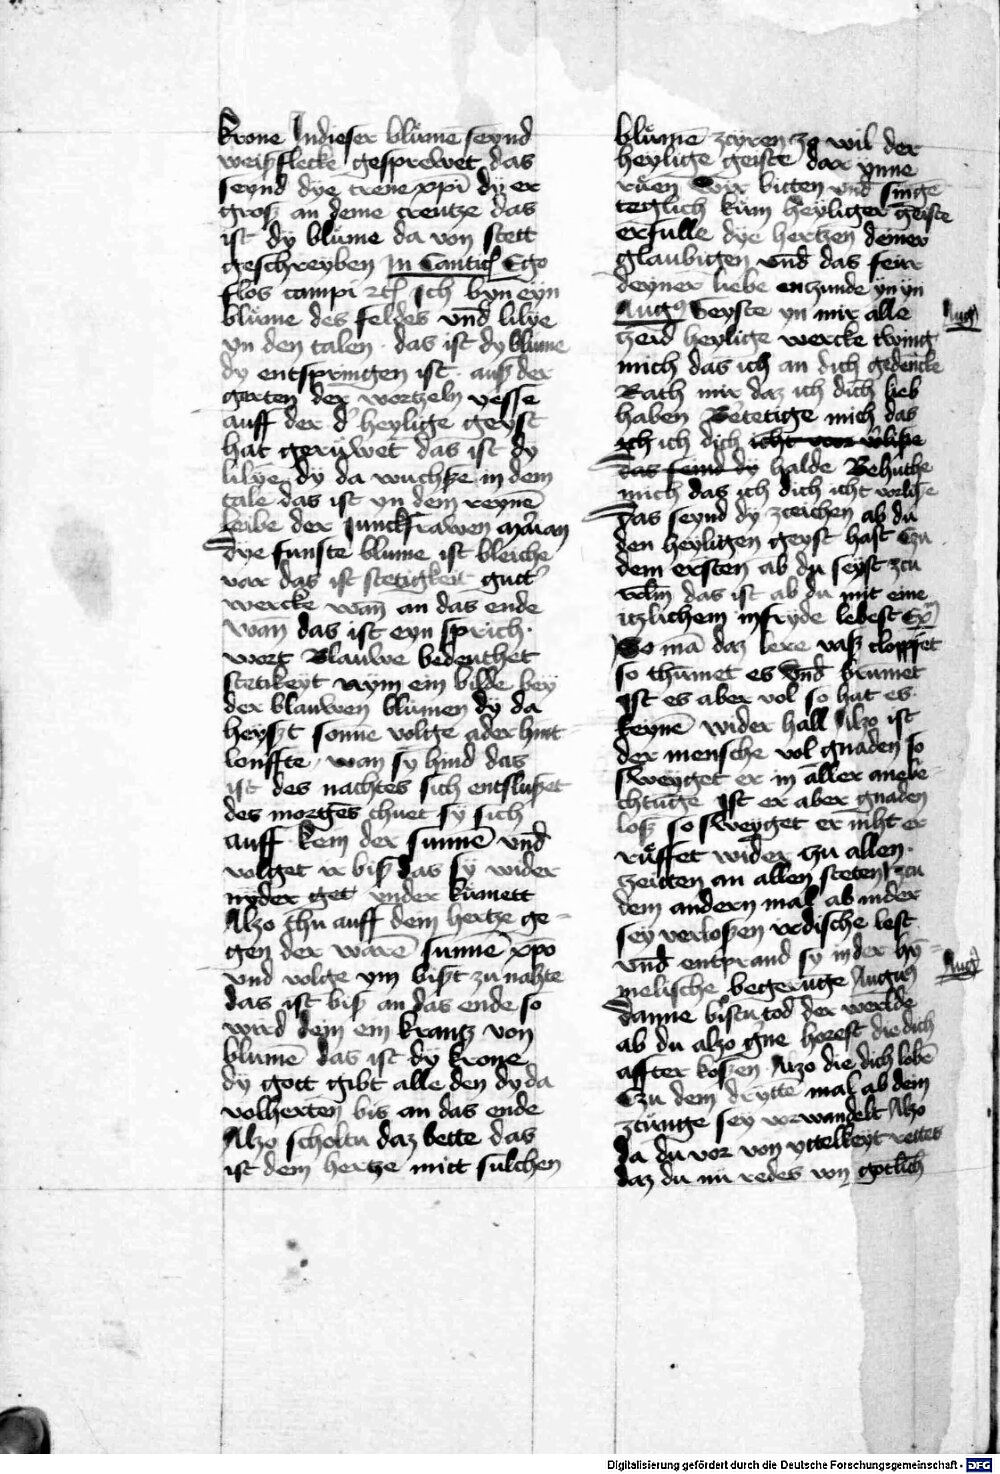 krone Indieser blůme seynd
weiß flecke gesprewet das
seynd dye trene xpi dy er
groß an deme creutze das
ist dy blůme da von stett
geschreyben In Cantic Ego
flos campi etc Ich byn eyn
blůme des feldes vnd lilye
yn den talen · das ist dy blume
dy entspringen ist · auß der
garten der wortzeln yesse
auff der d' heylige geyst
hat gerůwet das ist dy
lilye dy da wuchße in dem
tale das ist yn dem reynē
leibe der Junckfrawen marian
Dye funfte blume ist bleiche
var das ist stetigkeit gutt'
wercke wan̄ an das ende
wan̄ das ist eyn sprich·
wort Blauwe bedeuthet
stetikeyt nym ein bilde bey
der blauwen blumen dy da
heyßt sonne volge ader hint
leuffte, wan sy hind das
ist des nachtes sich entslußet
des morges thuet sy sich
auff kem der sunnē vnd
volget ir biß das sy wider
nyder get vnder kůmett
Alzo thu auff dem hertze ge=
gen der warē sunnē xpo
vnd volge ym bißt zu nahte
das ist biß an das ende so
wird dem ein krantz von
blumē das ist dy krone
dy gott gibt alle den dy da
volherten bis an das ende
Alzo scholtu daz bette das
ist dem hertze mitt sulchen
blůmē zcyren zo wil der
heylige geiste dar ynne
růen Wir bitten vnd singē
teglich kům heyliger geiste
erfulle dye hertzen deiner
glaubigen vnd das feur
deyner liebe enczunde yn yn
Aug9 Geyste yn mir alle
Aug
heylige wercke twing
mich das ich an dich gedencke
Rath mir daz ich dich lieb
haben Betetige mich das
ich ich dich icht
das feind dy halde Behuthe
mich das ich dich icht vorliße
Das seynd dy zceichen ab du
den heyligen geyst hast Czu
dem ersten ab du seyst zcu
das ist ab du mit eine
itzlichem in fryde lebest Ex
So mā daz lere vaß cloppet
so thůmet es vnd brumet
Ist es aber vol so hat es
keynē wider hall Alzo ist
der mensche vol gnaden so
sweyget er in aller anefe=
chtūge Ist er aber gnaden
loß so sweyget er niht er
růffet wider czu allen
zeitten an allen steten zcu
dem andern mal ab in der
sey verloßen irdische lest
vnd entprand sy in der hy=
melische begerūge Augus
Aug
danne bistu tod der werlde
ab du alzo gne horest die dich
affter koßen Alzo die dich lobē
Czu dem drytte mal ab dein
zcunge sey vorwandelt Alzo
da du vor von yttelkeyt rettes
daz du nu redes von gotlich
Digitalisierung gefördert durch die Deutsche Forschungsgemeinschaft - DFG